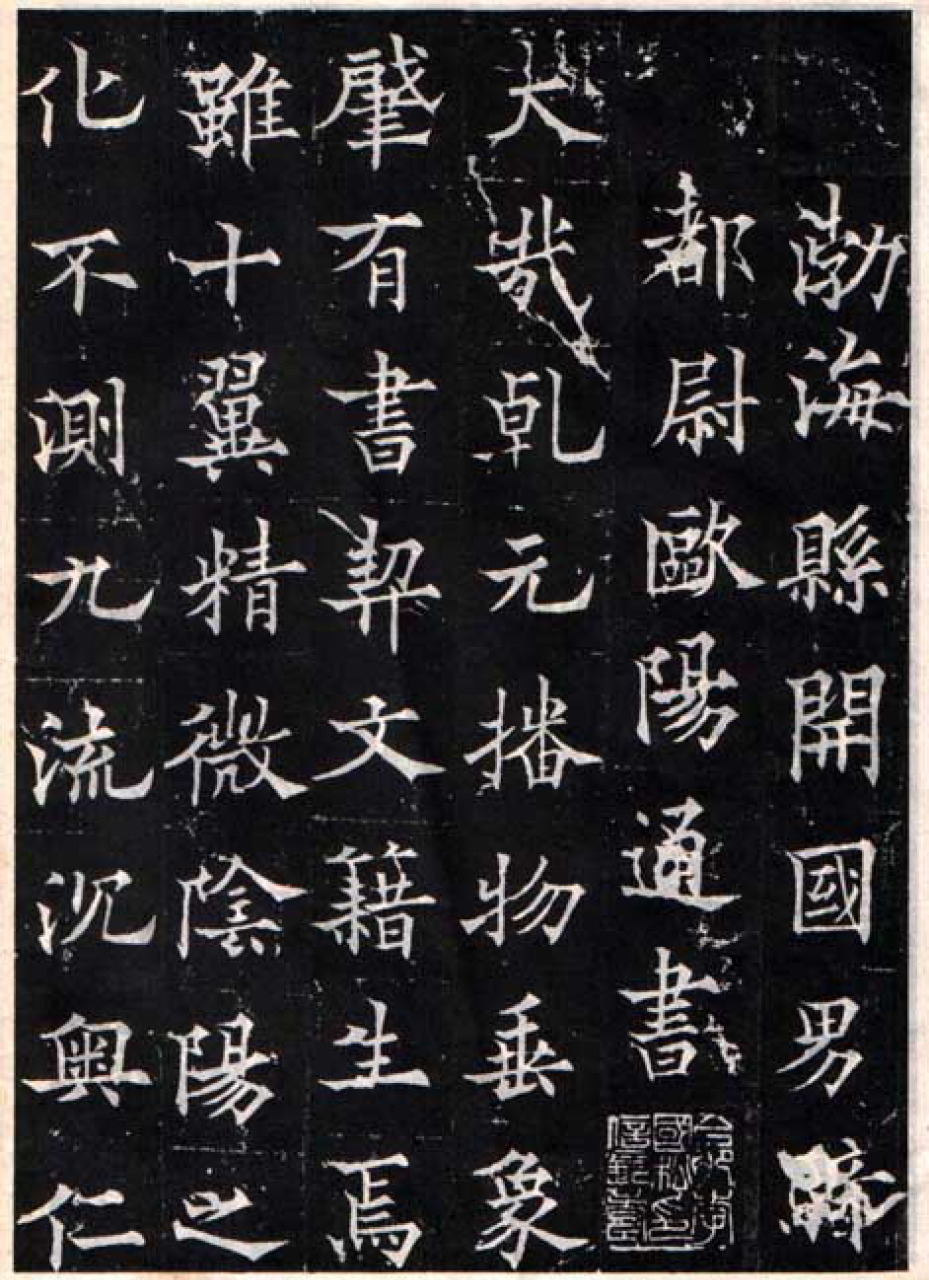 渤海縣開國男騎
都尉歐陽通書
大哉乹元播物垂象
肇有書契文籍生焉
雖十翼精微陰陽之
化不測九流沉奧仁